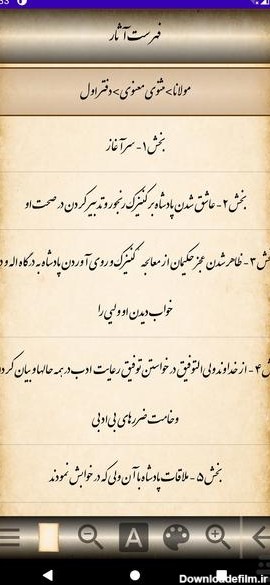 فهرست آثار
مولانا>مثنوی معنوی>دفتر اول
بخش ۱ - سرآغاز
بخش ۲ - عاشق شدن پادشاه بر کنیزک رنجور و تدبیر کردن در صحت او
بخش ۳ - ظاهر شدن عجز حکیمان از معالجه کنیزک و روی آوردن پادشاه به درگاه اله و در
خواب دیدن او ولیی را
۴ - از خداوند ولی‌التوفیق در خواستن توفیق رعایت ادب در همه حالها و بیان کردن
وخامت ضررهای بی‌ادبی
بخش ۵ - ملاقات پادشاه با آن ولی که در خوابش نمودند
A
Downloadefilm.ir